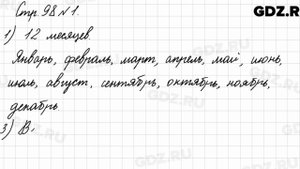 Стр. 98 № 1.
GDZ.RU
1) 12 месяцев
Январь, февраль, март, апрель, май, июнь,
июль, август, сентябрь, октябрь, ноябрь,
декабрь
3) В.